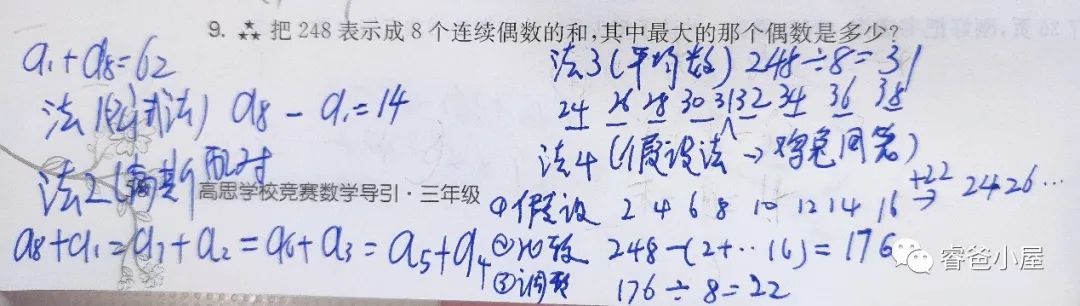 9. 把 248 表示成 8 个连续偶数的和,其中最大的那个偶数是多少?
a₁+a₈=62
法1(公式法) a₈-a₁=14
法2(高斯配对
高思学校竞赛数学导引·三年级
a₈+a₁=a₇+a₂=a₆+a₃=a₅+a₄
法3(平均数) 248÷8=31
24 26 28 30 31 32 34 36 38
法4(假设法→鸡兔同笼)
①假设 2 4 6 8 10 12 14 16 +22→ 24 26…
②比较 248-(2+‥16)=176
③调整 176÷8=22
睿爸小屋